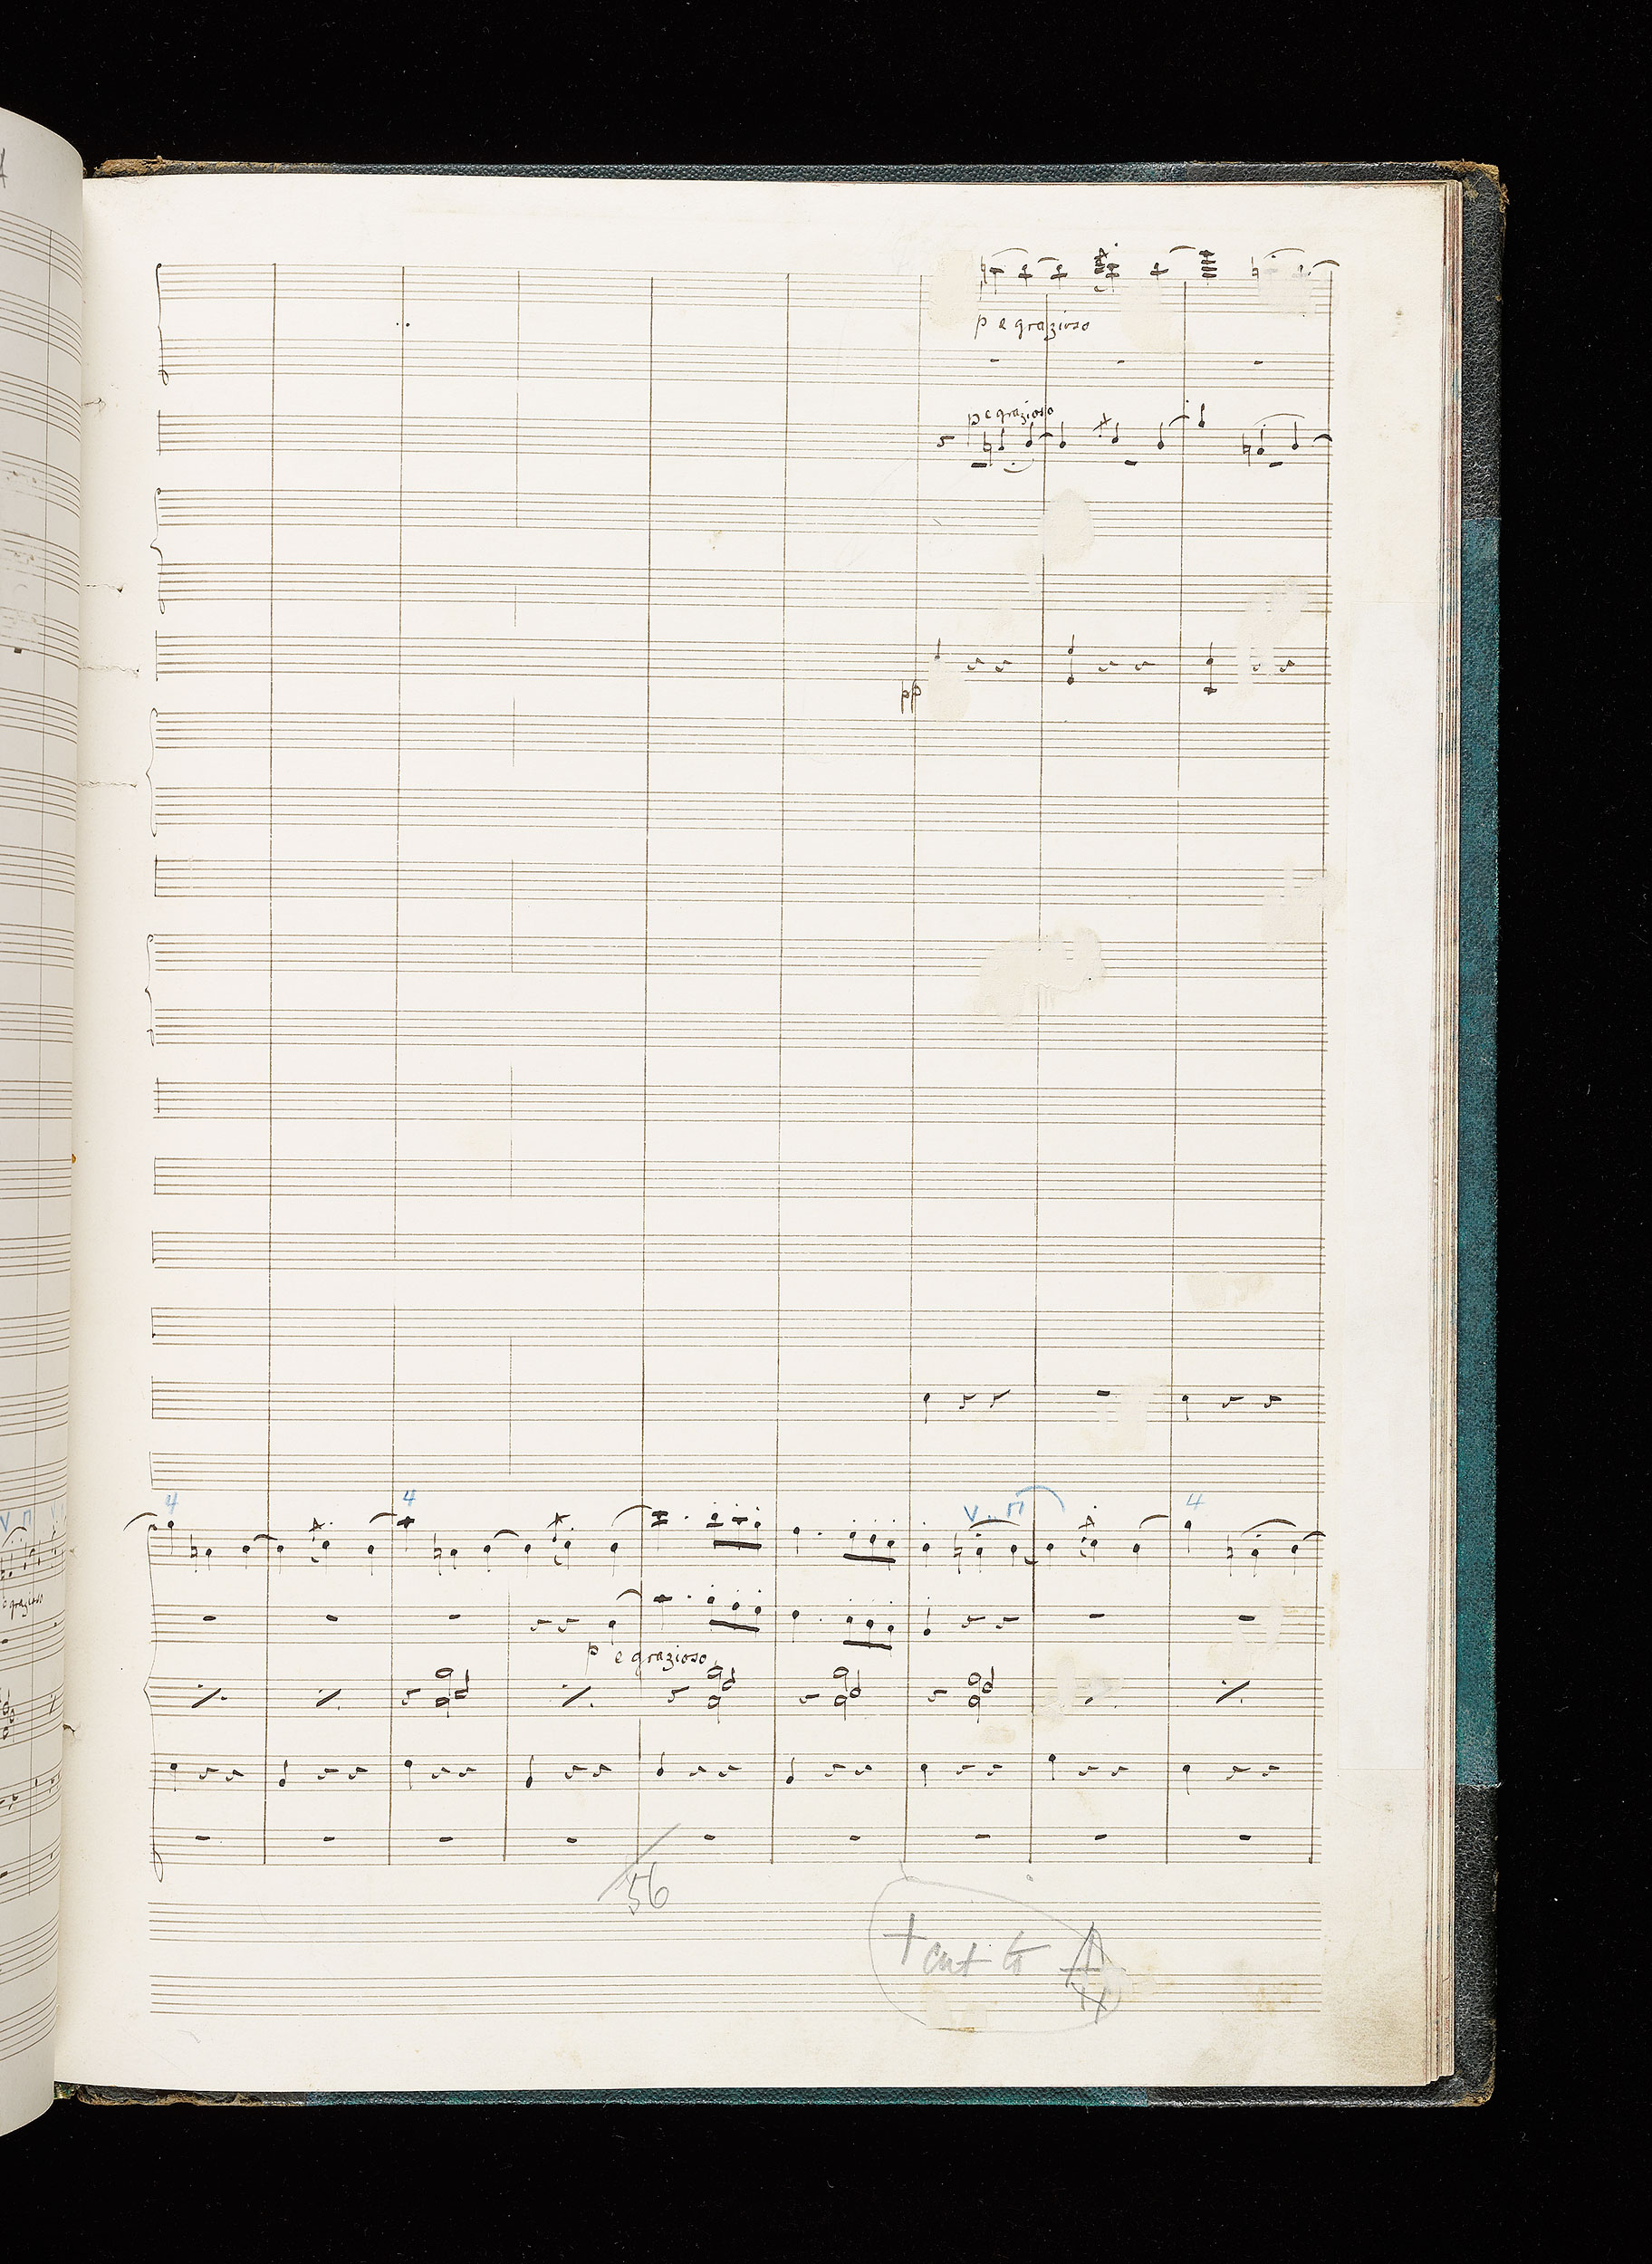 p e grazioso
p e grazioso
pp
4
4
V
4
e grazioso
p e grazioso
56
+ cut to